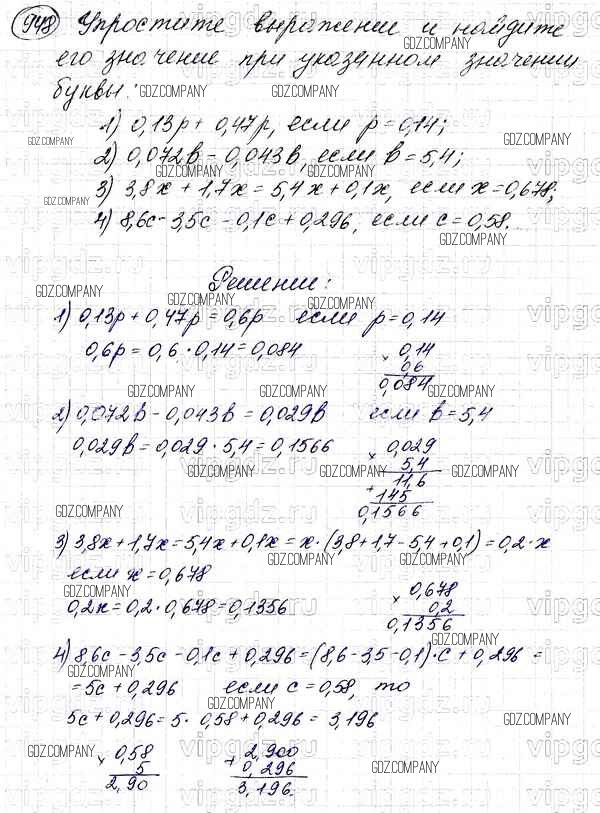 948 Упростите выражение и найдите
его значение при указанном значении
буквы:
1) 0,13p + 0,47p, если p = 0,14;
2) 0,072b - 0,043b, если b = 5,4;
3) 3,8x + 1,7x = 5,4x + 0,1x, если x = 0,678;
4) 8,6c - 3,5c - 0,1c + 0,296, если c = 0,58.
Решение:
1) 0,13p + 0,47p = 0,6p если p = 0,14
0,6p = 0,6 · 0,14 = 0,084
× 0,14
0,6
0,084
2) 0,072b - 0,043b = 0,029b если b = 5,4
0,029b = 0,029 · 5,4 = 0,1566
× 0,029
5,4
+ 11,6
145
0,1566
3) 3,8x + 1,7x = 5,4x + 0,1x = x · (3,8 + 1,7 - 5,4 + 0,1) = 0,2 · x
если x = 0,678
0,2x = 0,2 · 0,678 = 0,1356
× 0,678
0,2
0,1356
4) 8,6c - 3,5c - 0,1c + 0,296 = (8,6 - 3,5 - 0,1) · c + 0,296 =
= 5c + 0,296 если c = 0,58, то
5c + 0,296 = 5 · 0,58 + 0,296 = 3,196
× 0,58
5
2,90
+ 2,900
0,296
3,196.
GDZ.COMPANY
vipgdz.ru